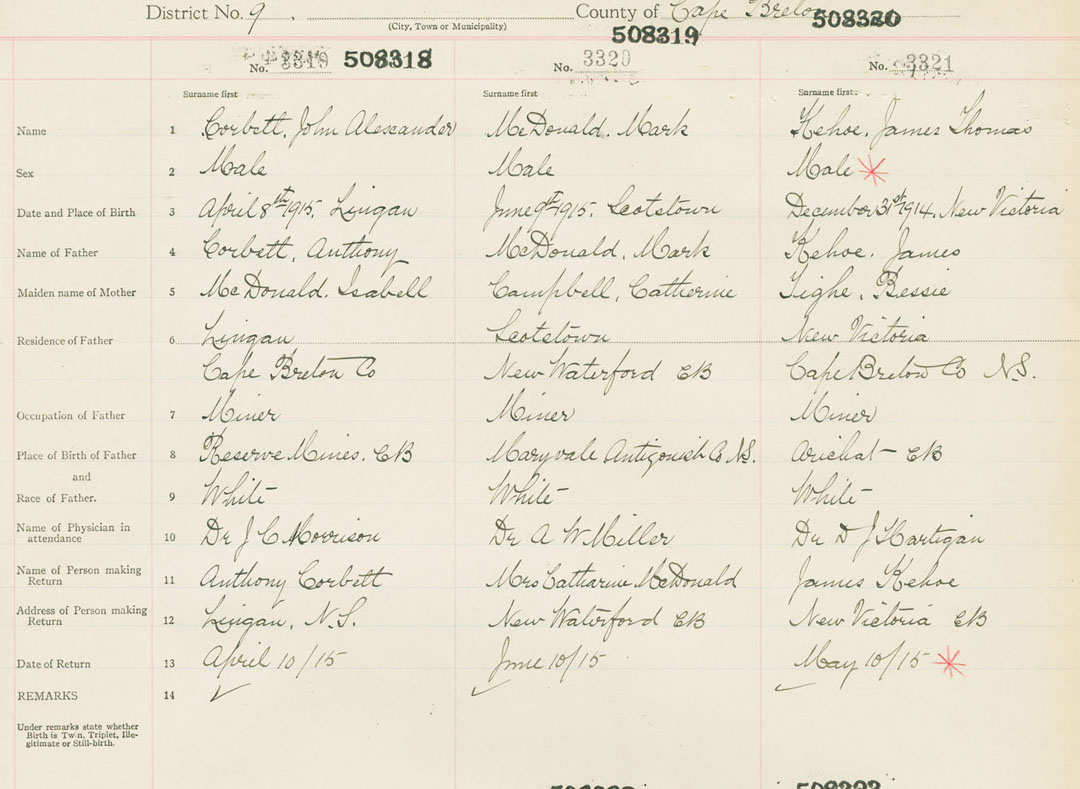 District No. 9 County of Cape Breton 508320
(City, Town or Municipality) 508319
No. 3319 508318 No. 3320 No. 3321
Surname first Surname first Surname first
Name 1 Corbett, John Alexander McDonald, Mark Kehoe, James Thomas
Sex 2 Male Male Male
Date and Place of Birth 3 April 8th 1915. Lingan June 9th 1915. Scotstown December 31st 1914. New Victoria
Name of Father 4 Corbett, Anthony McDonald, Mark Kehoe. James
Maiden name of Mother 5 McDonald. Isabell Campbell, Catherine Tighe, Bessie
Residence of Father 6 Lingan Scotstown New Victoria
Cape Breton Co New Waterford CB Cape Breton Co N.S.
Occupation of Father 7 Miner Miner Miner
Place of Birth of Father 8 Reserve Mines. CB Maryvale Antigonish Co N.S. Arichat CB
and
Race of Father. 9 White White White
Name of Physician in attendance 10 Dr J C Morrison Dr A W Miller Dr D J Hartigan
Name of Person making Return 11 Anthony Corbett Mrs Catharine McDonald James Kehoe
Address of Person making Return 12 Lingan, N.S. New Waterford CB New Victoria CB
Date of Return 13 April 10/15 June 10/15 May 10/15
REMARKS 14
Under remarks state whether
Birth is Twin, Triplet, Ille-
gitimate or Still-birth.